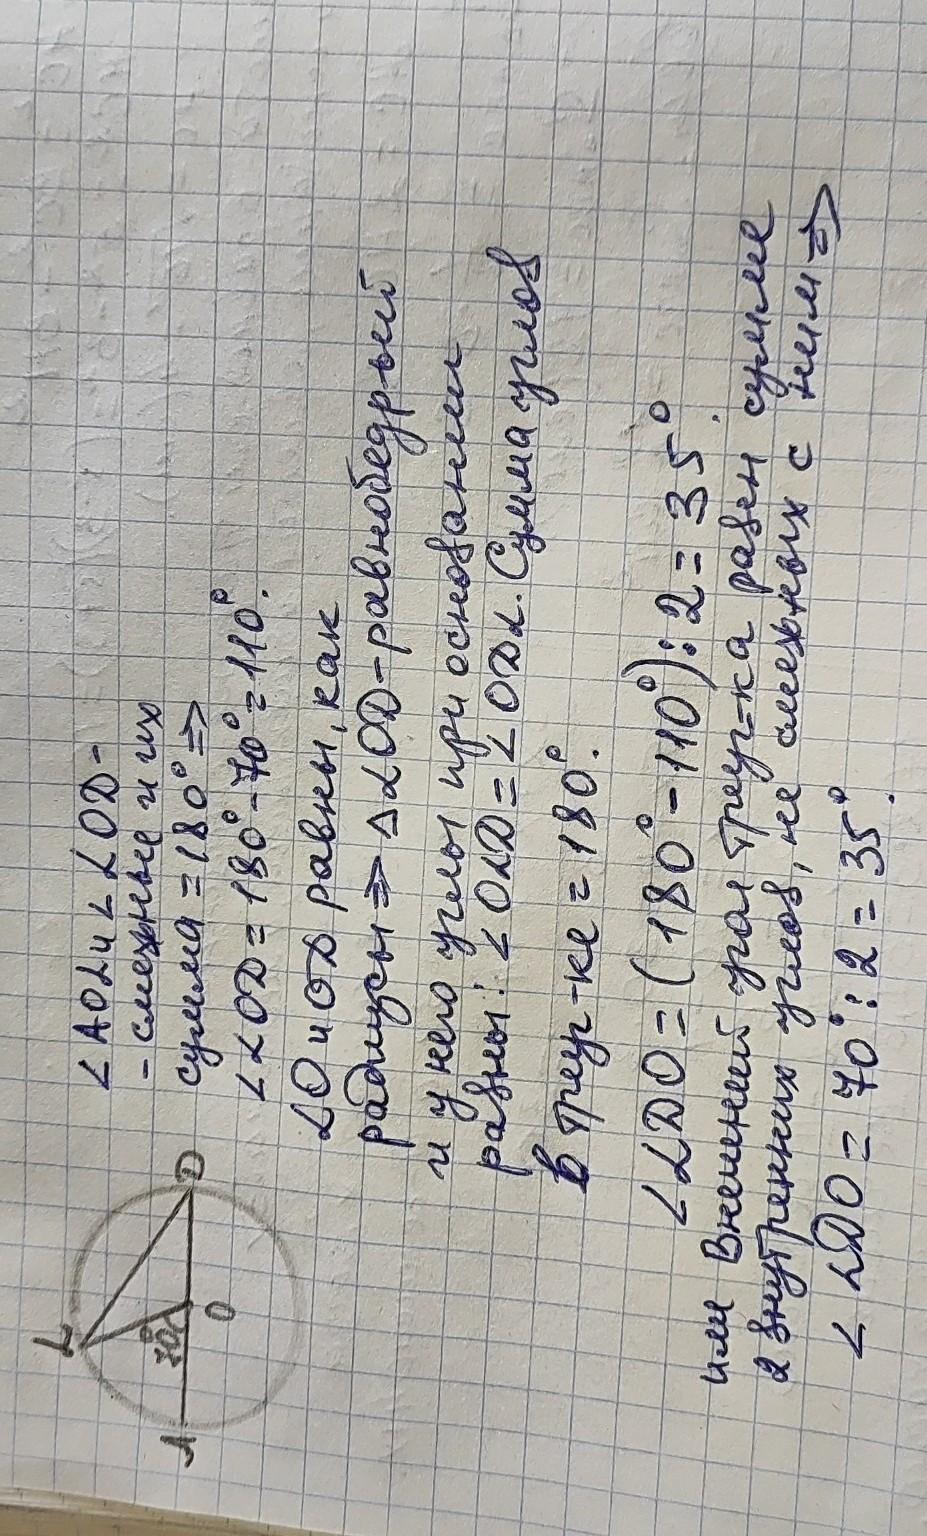 L
A
70°
O
D
∠AOL и ∠LOD -
- смежные и их
сумма = 180° ⇒
∠LOD = 180° - 70° = 110°.
LO и OD равны, как
радиусы ⇒ △LOD - равнобедрый
и у него углы при основании
равны: ∠OLD = ∠ODL. Сумма углов
в треуг-ке = 180°.
∠LDO = (180° - 110°) : 2 = 35°.
или Внешний угол треуг-ка равен сумме
2 внутренних углов, не смежных с ним ⇒
∠LDO = 70° : 2 = 35°.